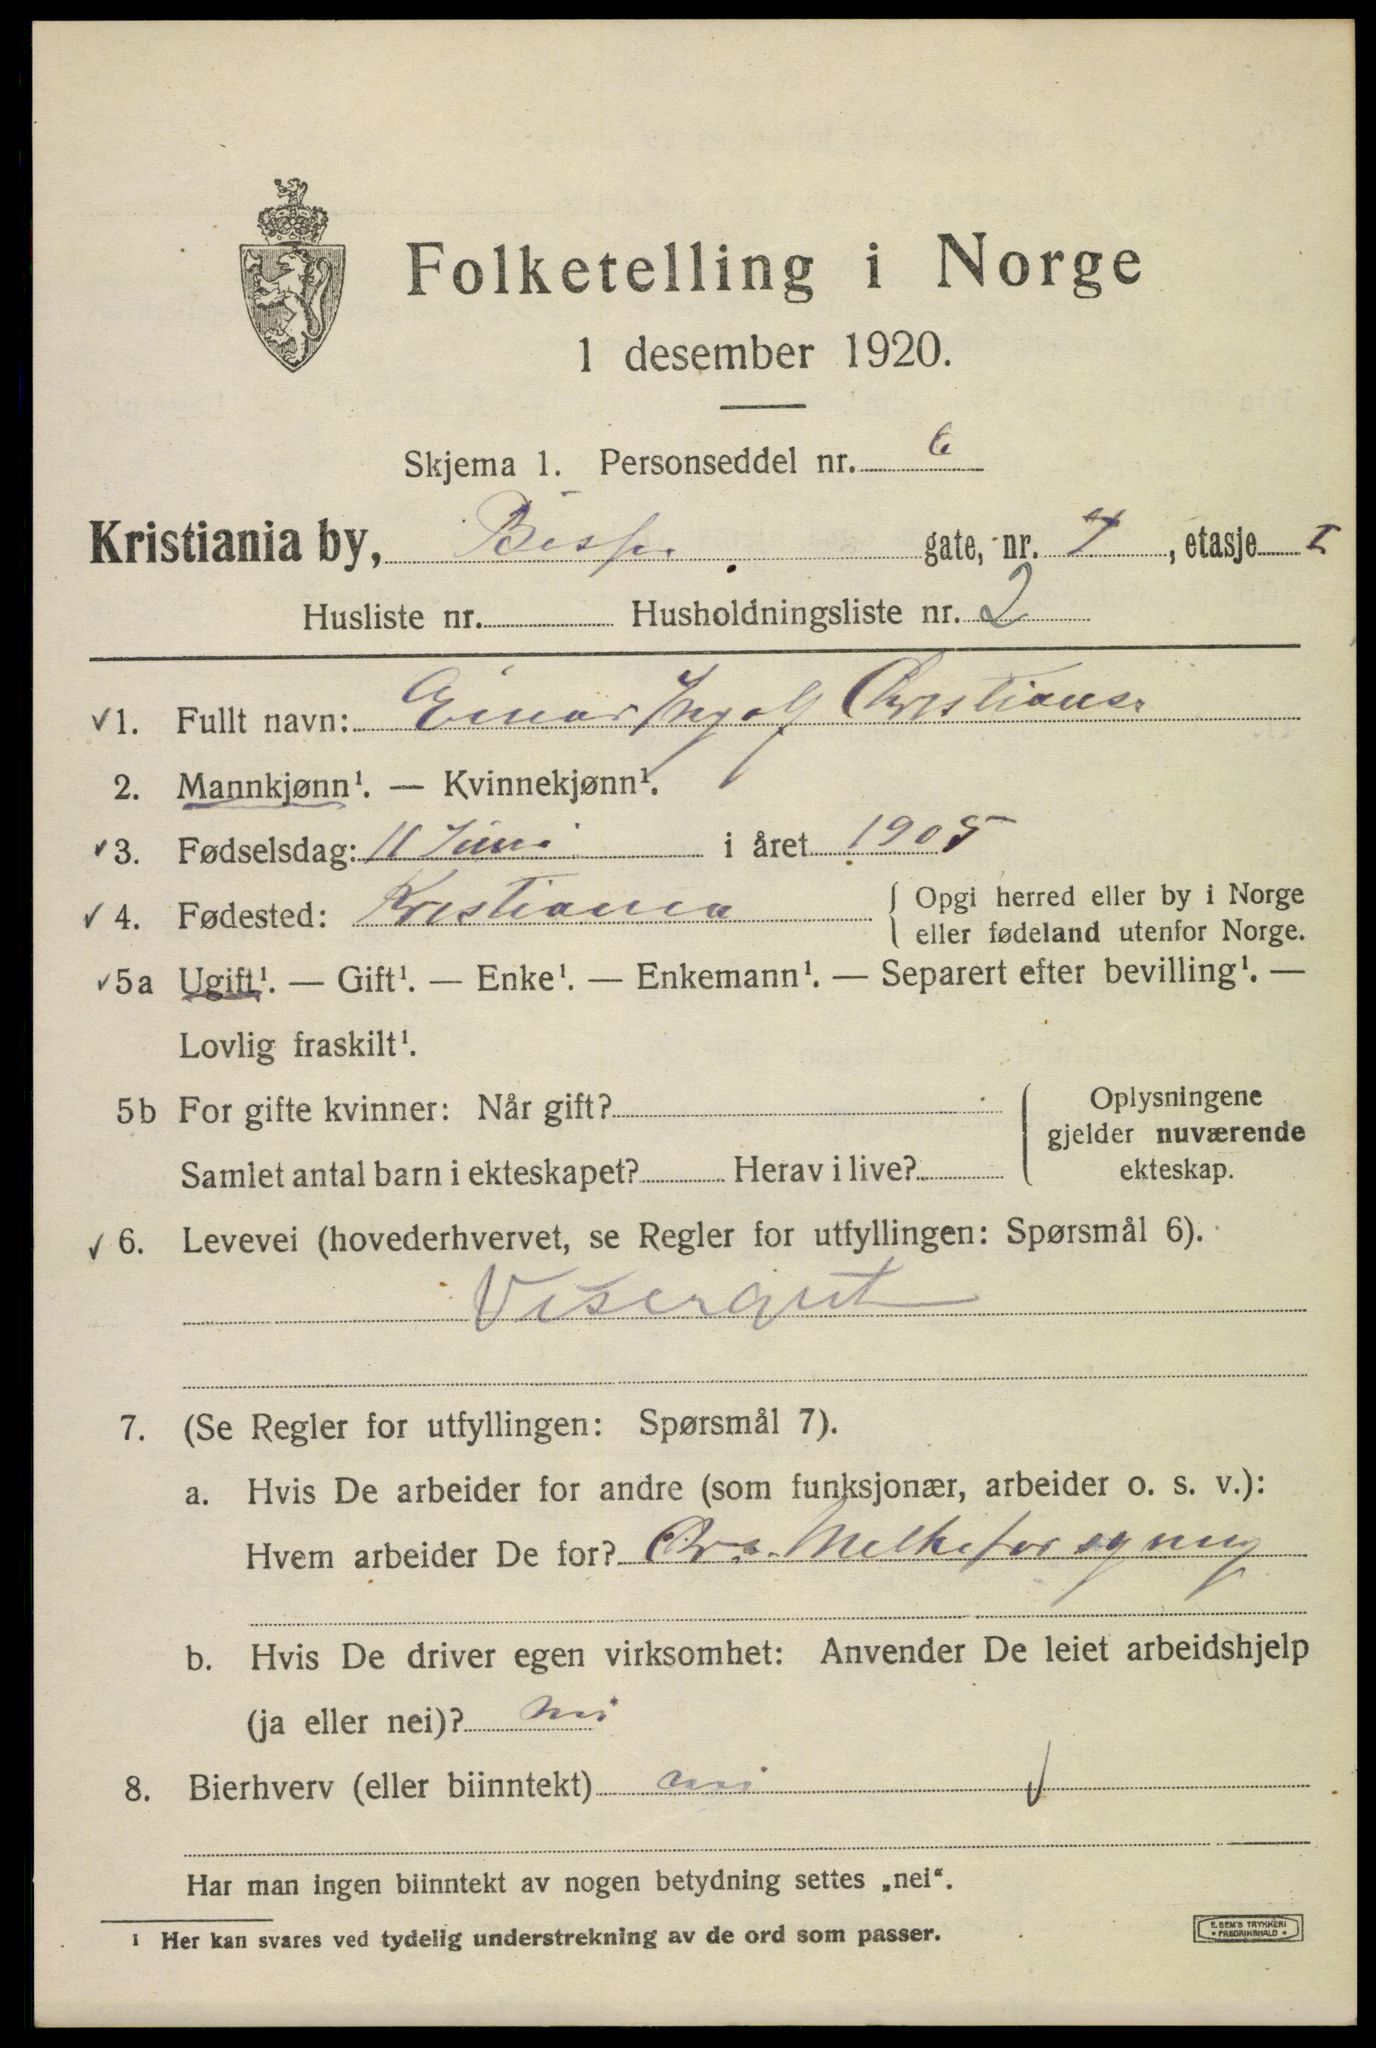 Folketelling i Norge
1 desember 1920.
Skjema 1. Personseddel nr. 6
Kristiania by, Bispe gate, nr. 7, etasje I
Husliste nr. Husholdningsliste nr. 2
1. Fullt navn: Einar Ingolf Christians.
2. Mannkjønn¹. — Kvinnekjønn¹.
3. Fødselsdag: 11 Juni i året 1905
4. Fødested: Kristiania { Opgi herred eller by i Norge
eller fødeland utenfor Norge.
5a Ugift¹. — Gift¹. — Enke¹. — Enkemann¹. — Separert efter bevilling¹. —
Lovlig fraskilt¹.
5b For gifte kvinner: Når gift?
Samlet antal barn i ekteskapet? Herav i live?
Oplysningene
gjelder nuværende
ekteskap.
6. Levevei (hovederhvervet, se Regler for utfyllingen: Spørsmål 6).
Visergut
7. (Se Regler for utfyllingen: Spørsmål 7).
a. Hvis De arbeider for andre (som funksjonær, arbeider o. s. v.):
Hvem arbeider De for? Cra. Melkeforsyning
b. Hvis De driver egen virksomhet: Anvender De leiet arbeidshjelp
(ja eller nei)? nei
8. Bierhverv (eller biinntekt) nei
Har man ingen biinntekt av nogen betydning settes „nei“.
¹ Her kan svares ved tydelig understrekning av de ord som passer.
E. SEM'S TRYKKERI
• FREDRIKSHALD •